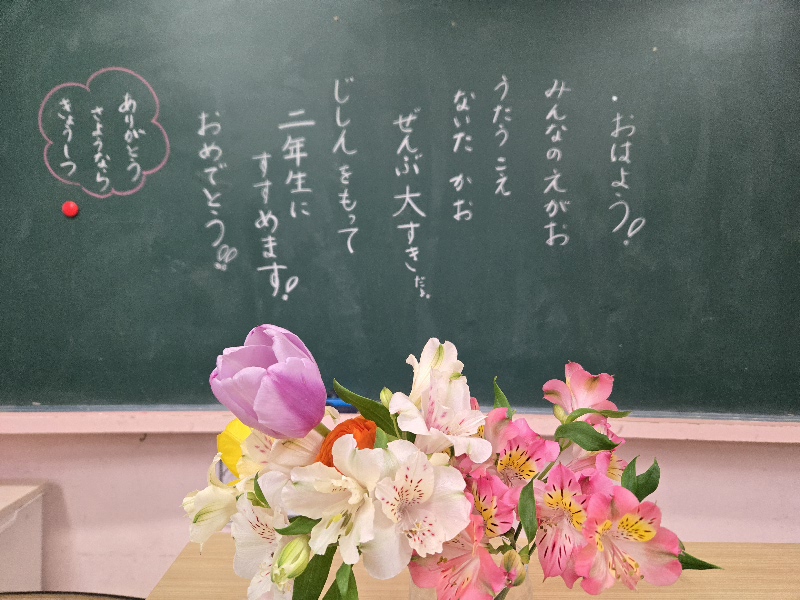 ・おはよう!
みんなのえがお
うたうこえ
ないた かお
ぜんぶ 大すきだよ。
じしんをもって
二年生に
すすめます!
おめでとう!!
ありがとう
さようなら
きょうしつ